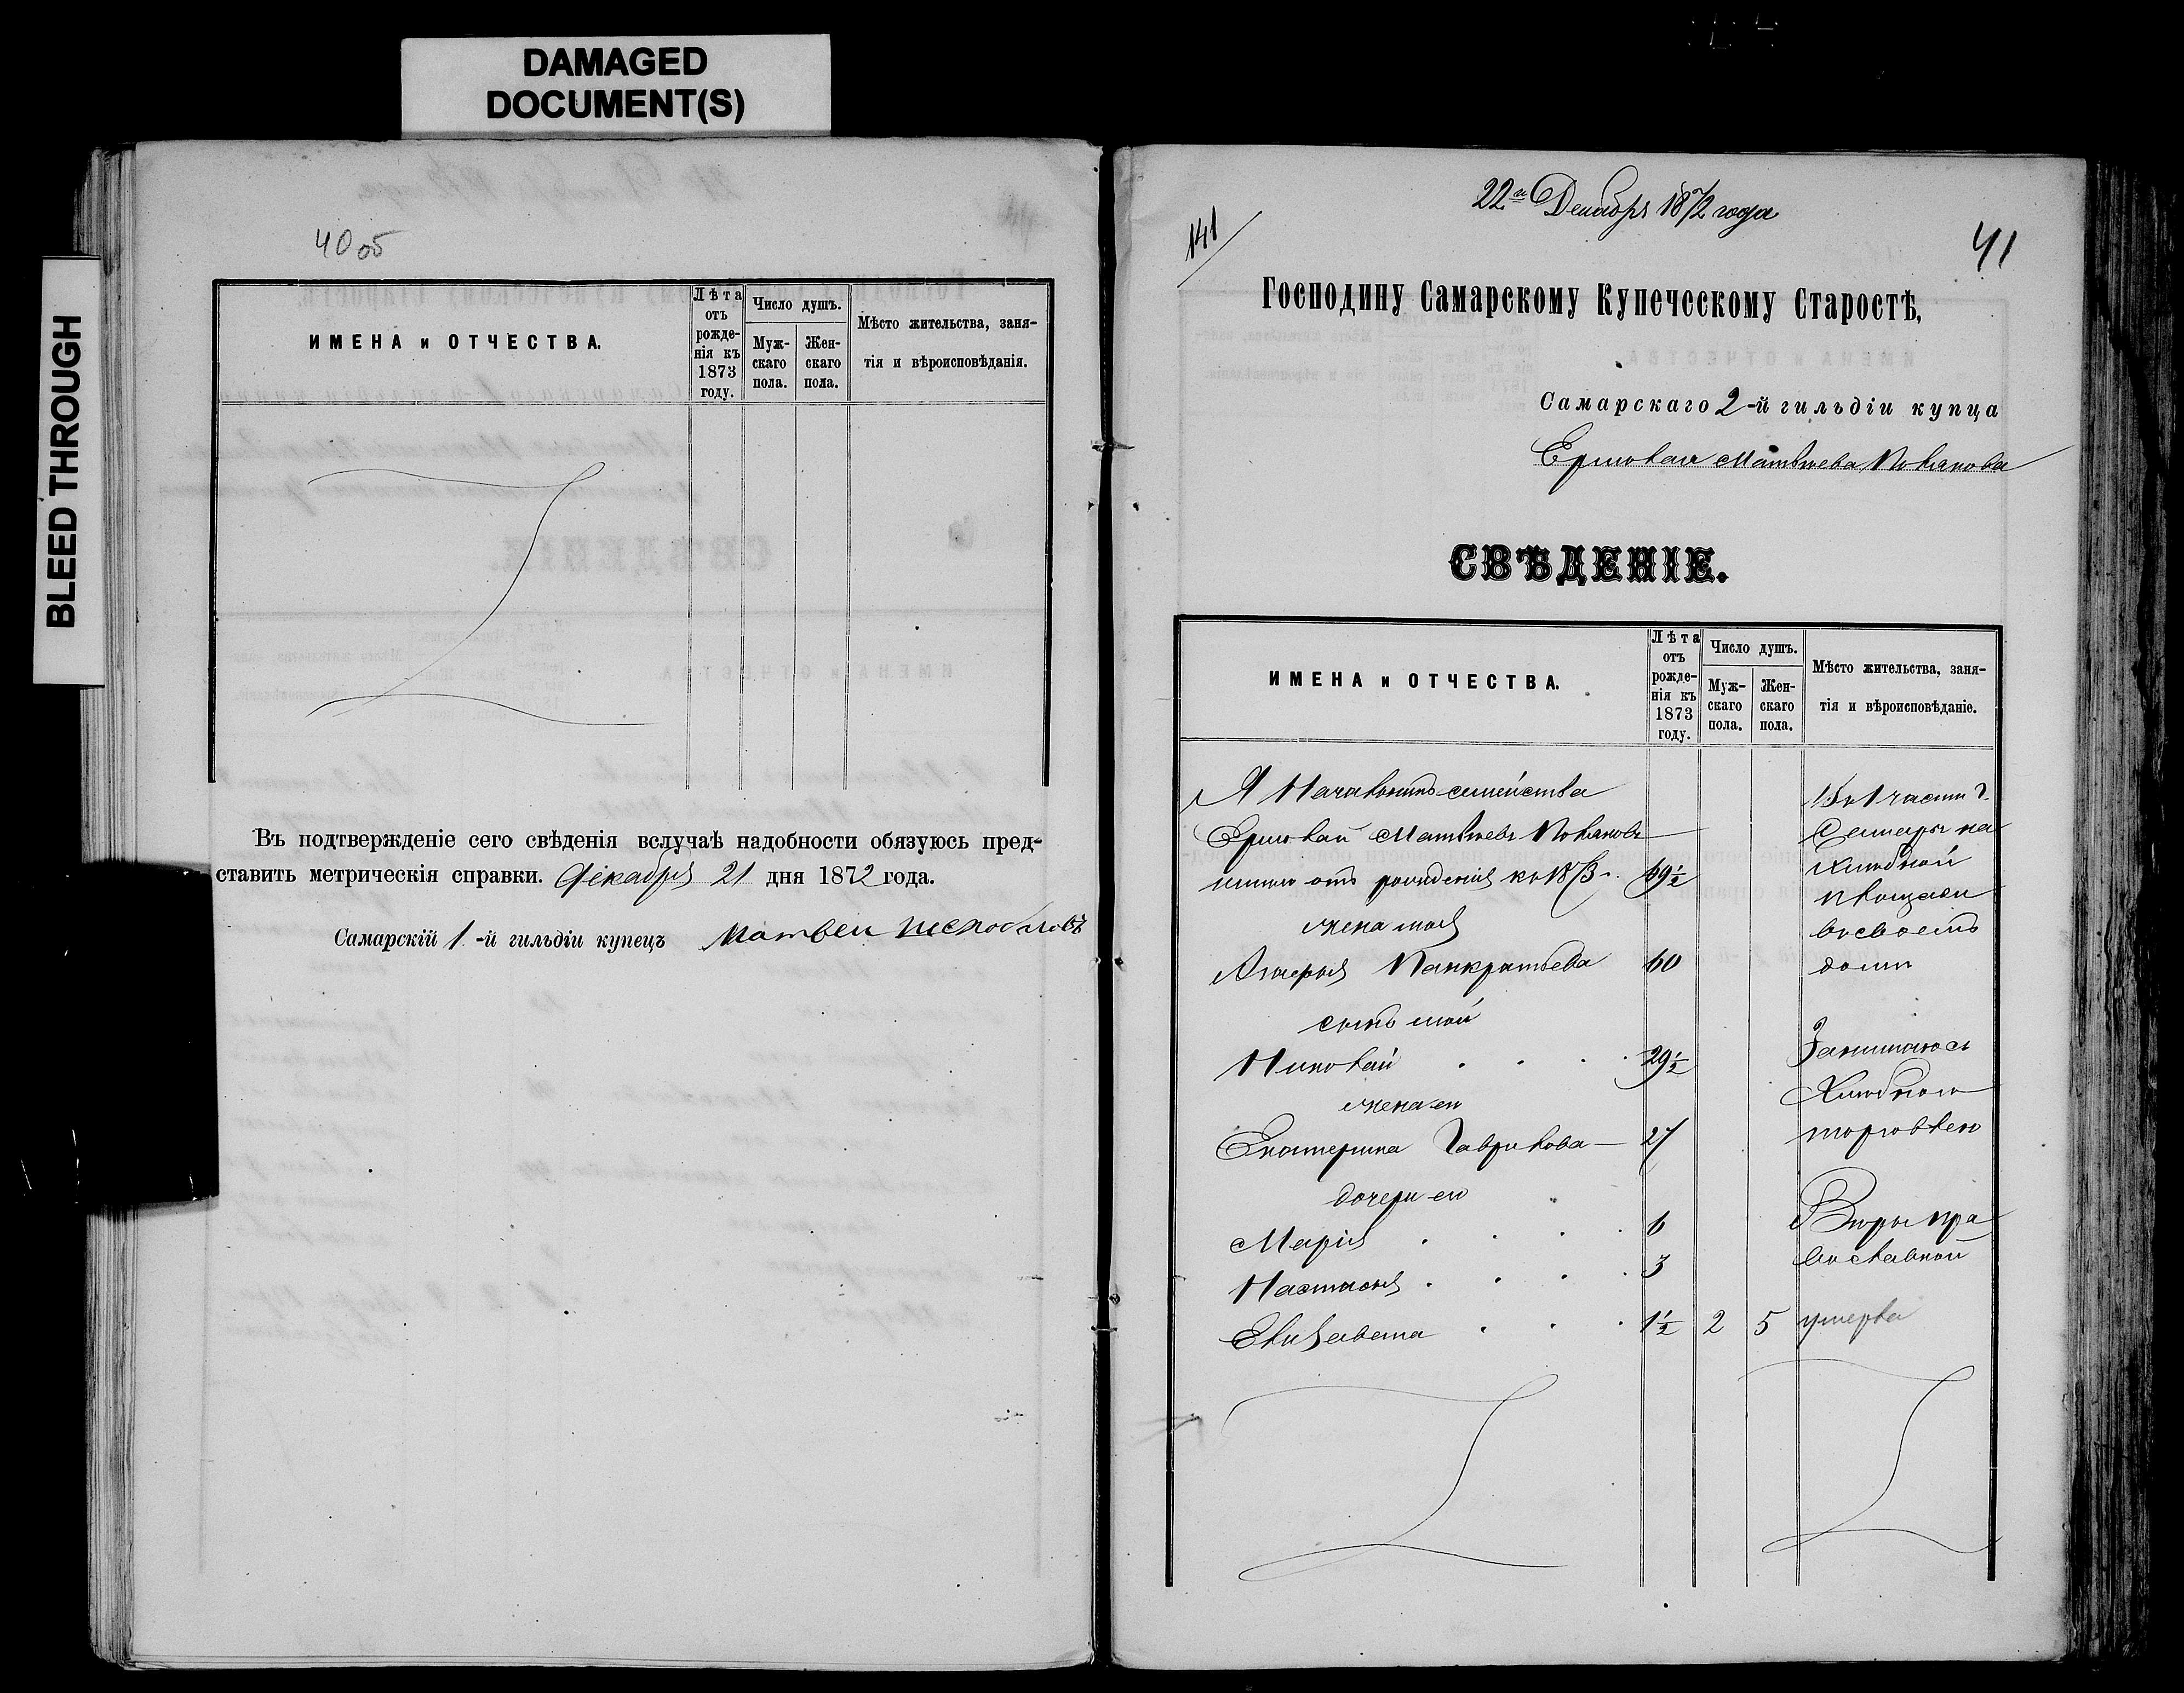 DAMAGED
DOCUMENT(S)
BLEED THROUGH
40 об
ИМЕНА и ОТЧЕСТВА.
Лѣта отъ рожденія къ 1873 году.
Число душъ.
Мужскаго пола.
Женскаго пола.
Мѣсто жительства, заня-
тія и вѣроисповѣданія.
Въ подтвержденіе сего свѣденія вслучаѣ надобности обязуюсь пред-
ставить метрическія справки. Декабря 21 дня 1872 года.
Самарскій 1-й гильдіи купецъ Матвей
22го Декабря 1872 года
141
41
Господину Самарскому Купеческому Старостѣ,
Самарскаго 2-й гильдіи купца
Ермолая Матвѣева
СВѢДЕНІЕ.
ИМЕНА и ОТЧЕСТВА.
Лѣта отъ рожденія къ 1873 году.
Число душъ.
Мужскаго пола.
Женскаго пола.
Мѣсто жительства, заня-
тія и вѣроисповѣданіе.
Я Начальникъ семейства
Ермолай Матвѣевъ
отъ рожденія къ 1873 г. 59½
жена моя
Панкратьева 60
сынъ мой
Николай 29½
жена его
Екатерина Гаврилова 27
дочери его
Марія 6
Настасья 3
Елизавета 1½ 2 5 умерла
Во 1 части г.
Самары на
Хлѣбной
площади
во своемъ
доми
Занимаюсь
Хлѣбною
торговлею
Вѣры пра
вославной